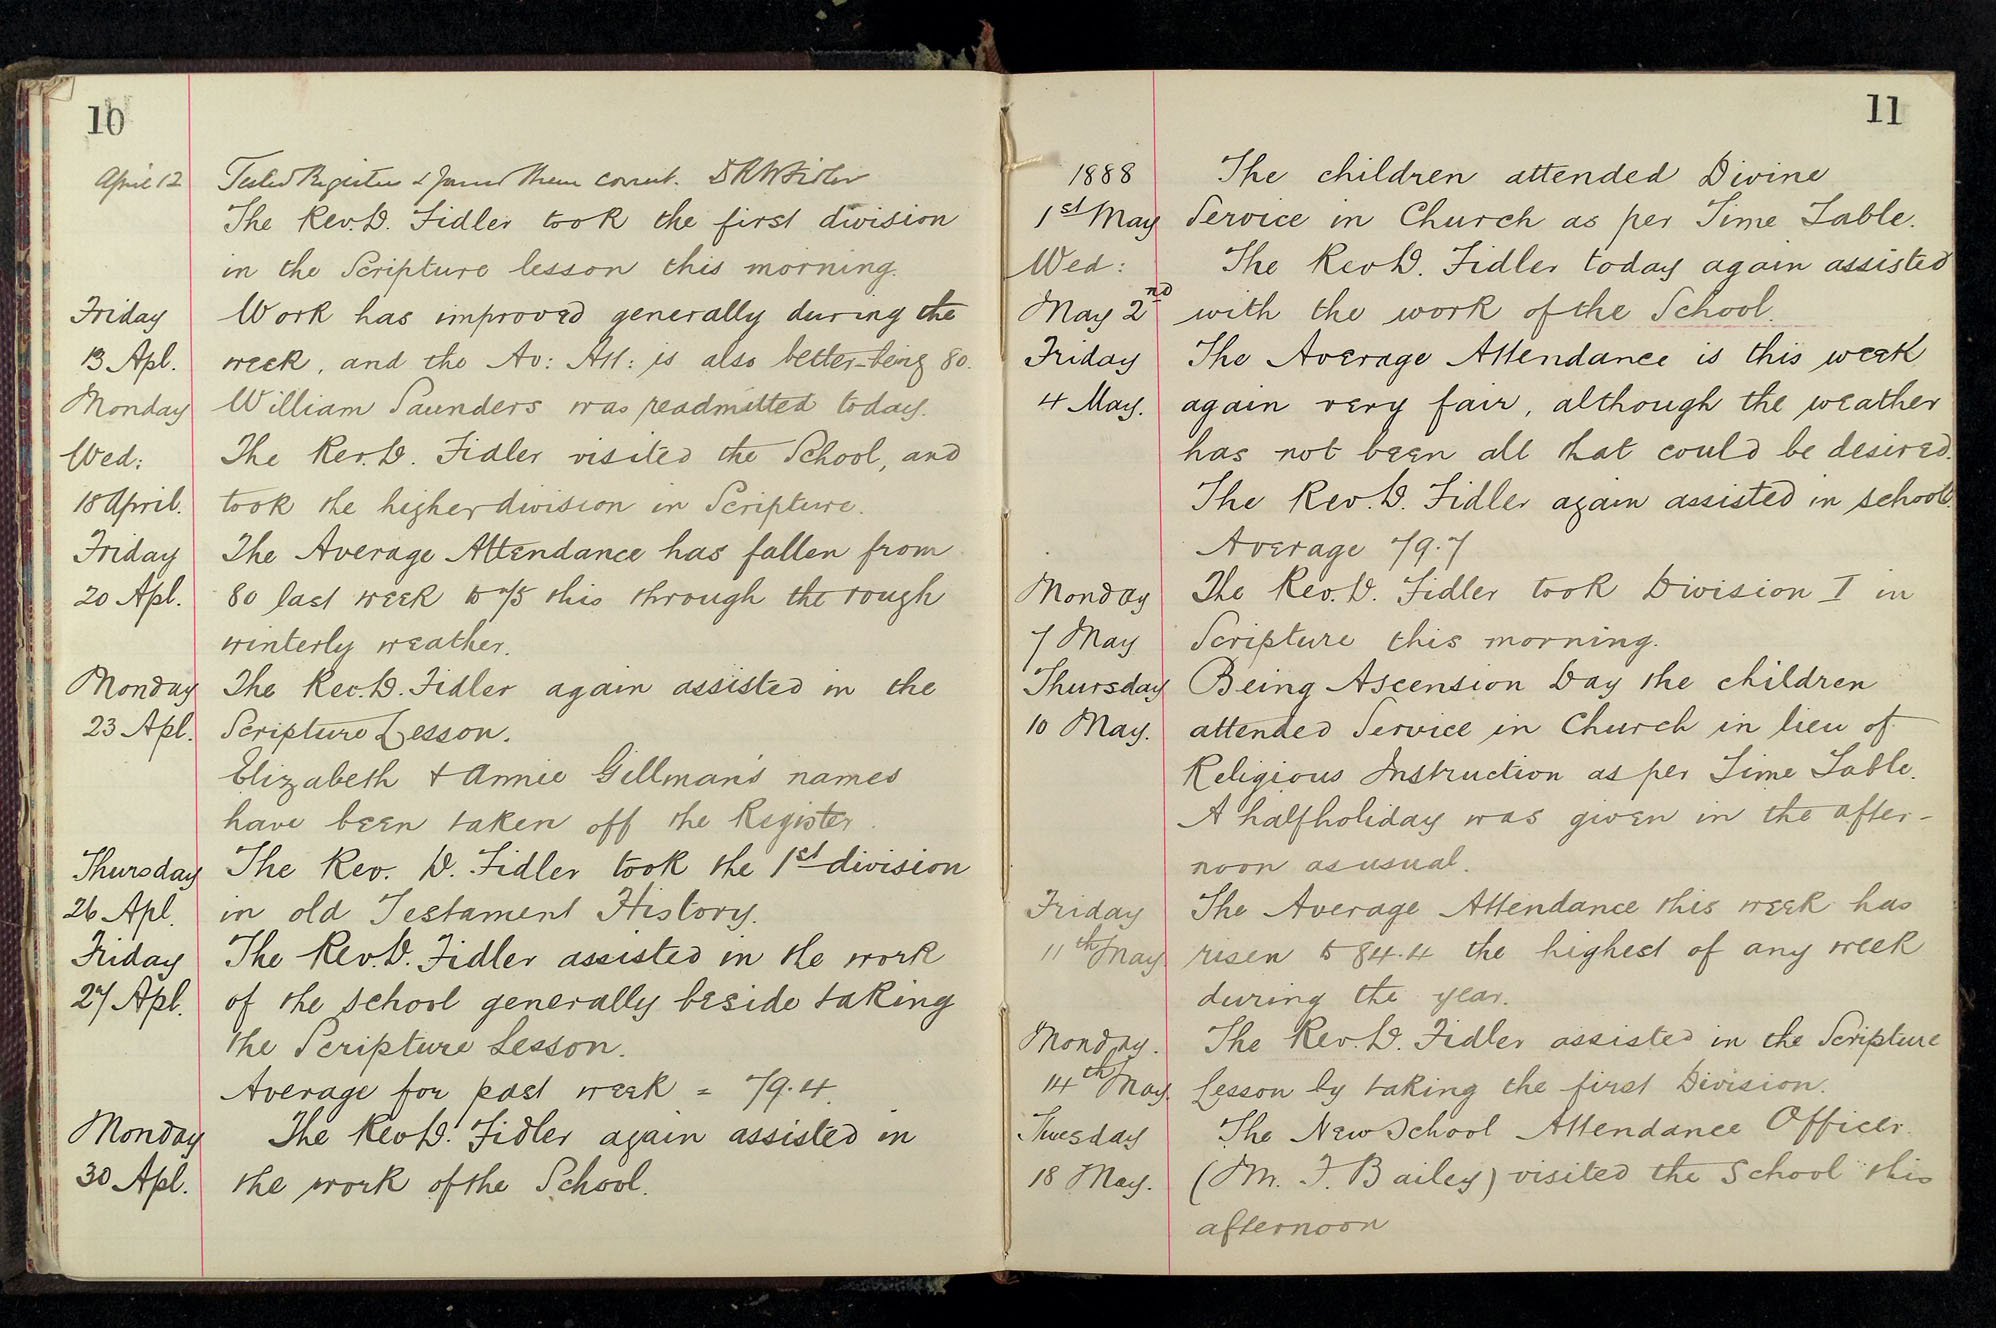 10
April 12 Tested Registers & found them correct. D R W Fidler
The Rev. D. Fidler took the first division
in the Scripture lesson this morning.
Friday Work has improved generally during the
13 Apl. week, and the Av: Att: is also better - being 80.
Monday William Saunders was readmitted today.
Wed: The Rev. D. Fidler visited the School, and
18 April. took the higher division in Scripture.
Friday The Average Attendance has fallen from
20 Apl. 80 last week to 75 this through the rough
winterly weather.
Monday The Rev. D. Fidler again assisted in the
23 Apl. Scripture Lesson.
Elizabeth & Annie Gillman's names
have been taken off the Register.
Thursday The Rev. D. Fidler took the 1st division
26 Apl. in old Testament History.
Friday The Rev. D. Fidler assisted in the work
27 Apl. of the school generally beside taking
the Scripture Lesson.
Average for past week = 79.4.
Monday The Rev D. Fidler again assisted in
30 Apl. the work of the School.
11
1888 The children attended Divine
1st May Service in Church as per Time Table.
Wed: The Rev D. Fidler today again assisted
May 2nd with the work of the School.
Friday The Average Attendance is this week
4 May. again very fair, although the weather
has not been all that could be desired.
The Rev. D. Fidler again assisted in school.
Average 79.7
Monday The Rev. D. Fidler took Division I in
7 May Scripture this morning.
Thursday Being Ascension Day the children
10 May. attended Service in Church in lieu of
Religious Instruction as per Time Table.
A halfholiday was given in the after-
noon as usual.
Friday The Average Attendance this week has
11th May risen to 84.4 the highest of any week
during the year.
Monday. The Rev. D. Fidler assisted in the Scripture
14th May Lesson by taking the first Division.
Tuesday The New School Attendance Officer
18 May. (Mr. F. Bailey) visited the School this
afternoon